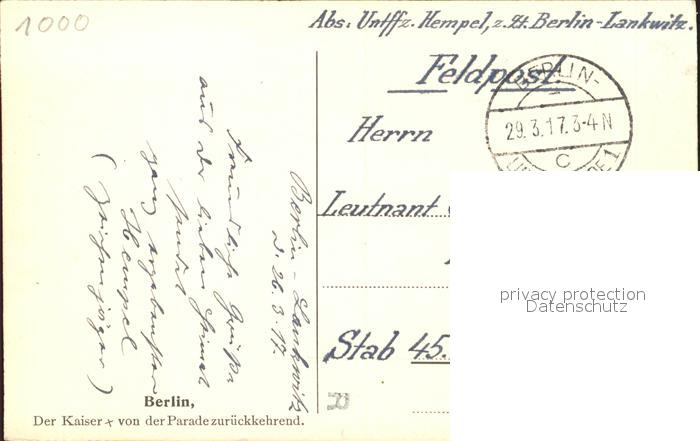 1000
Abs: Untffz. Hempel, z. Zt. Berlin-Lankwitz.
Feldpost.
BERLIN-
29.3.17.3-4N
C
Herrn
Leutnant
Stab 45.
privacy protection
Datenschutz
Berlin-Lankwitz
d. 26.3.17.
Freundliche Grüße
aus der lieben Heimat
sendet
ganz ergebenster
Hempel
(Zeichenjäger)
Berlin,
Der Kaiser x von der Parade zurückkehrend.